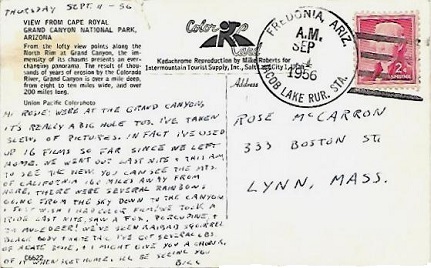 THURSDAY SEPT. 11 - 56
VIEW FROM CAPE ROYAL
GRAND CANYON NATIONAL PARK,
ARIZONA
From the lofty view points along the
North Rim at Grand Canyon, the im-
mensity of its chasms presents an ever-
changing panorama. The result of thous-
ands of years of erosion by the Colorado
River, Grand Canyon is over a mile deep,
from eight to ten miles wide, and over
200 miles long.
Union Pacific Colorphoto
HI ROSIE: WE'RE AT THE GRAND CANYON,
IT'S REALLY A BIG HOLE TOO. I'VE TAKEN
SLEWS OF PICTURES. IN FACT I'VE USED
UP 16 FILMS SO FAR SINCE WE LEFT
HOME. WE WENT OUT LAST NITE & THIS AM
TO SEE THE VIEW. YOU CAN SEE THE MTS.
OF CALIFORNIA 160 MILES AWAY FROM
HERE. THERE WERE SEVERAL RAINBOWS
GOING FROM THE SKY DOWN TO THE CANYON
I JUST WISH I HAD COLOR FILM. WE TOOK A
RIDE LAST NITE, SAW A FOX, PORCUPINE, &
70 MULE DEER! WE'VE SEEN KAIBAB SQUIRREL
BLACK BODY & WHITE TAIL. I'VE GOT SEVERAL LBS.
OF IT WHEN I GET HOME. I'LL BE SEEING YOU
BILL
C6622
Color
Card
Kodachrome Reproduction by Mike Roberts for
Intermountain Tourist Supply, Inc., Salt Lake City, Utah
Address
FREDONIA, ARIZ.
A.M.
SEP
1956
JACOB LAKE RUR. STA.
2¢
ROSE McCARRON
333 BOSTON ST.
LYNN, MASS.